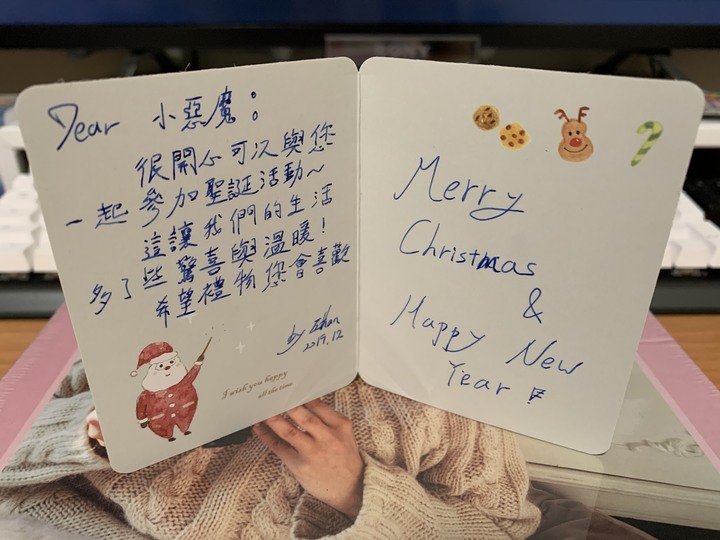 Dear 小惡魔：
很開心可以與您
一起參加聖誕活動~
這讓我們的生活
多了些驚喜與溫暖！
希望禮物您會喜歡
by Ethan
2019.12
I wish you happy
all the time
Merry
Christmas
&
Happy New
Year !